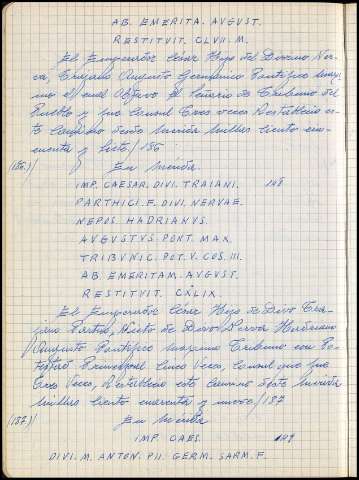 AB. EMERITA. AVGVST.
RESTITVIT. CLVII. M.
El Emperador César Hijo del Divino Ner-
va, Trajano Augusto Germanico Pontifice máxi-
mo el cual Obtuvo el Tenario de Tribuno del
Pueblo y fue Consul tres veces Restableció es-
te Camino desde Mérida millas ciento cin-
cuenta y siete/186
(186)/ En Mérida.
IMP. CAESAR. DIVI. TRAIANI. 148
PARTHICI. F. DIVI. NERVAE.
NEPOS. HADRIANVS.
AVGVSTVS. PONT. MAX.
TRIBVNIC. POT. V. COS. III.
AB. EMERITAM. AVGVST.
RESTITVIT. CXLIX.
El Emperador César Hijo de Divo Tra-
jano Partico, Nieto de Divo Nerva Hadriano
Augusto Pontifice maximo Tribuno con Po-
testad Principal Cinco Veces, Consul que fue
tres Veces, Restableció este camino desde Merida
millas ciento cuarenta y nueve/187
(187)/ En Mérida
IMP. CAES. 149
DIVI. M. ANTON. PII. GERM. SARM. F.